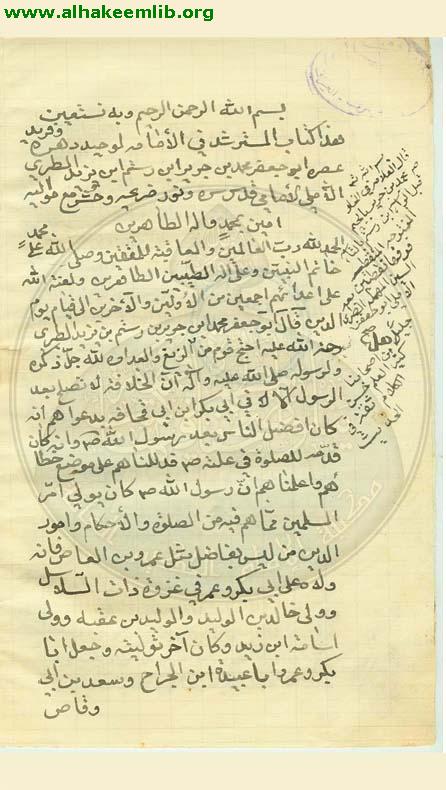 www.alhakeemlib.org
بسم الله الرحمن الرحيم وبه نستعين
هذا كتاب المسترشد في الأمامه لوحيد دهره وفريد
عصره ابو جعفر محمد بن جرير ابن رستم ابن يزيد الطبري
الآملي الأمامي قدس سره ونور ضريحه وحشره مع مواليه
امين بمحمد واله الطاهرين
الحمد لله رب العالمين والعاقبة للمتقين وصلى الله على محمد
خاتم النبيين وعلى اله الطيبين الطاهرين ولعنة الله
على اعدائهم اجمعين من الأولين والآخرين الى قيام يوم
الدين قال ابو جعفر محمد ابن جرير بن رستم بن يزيد الطبري
رحمة الله عليه احتج قوم من الزيغ والعداوه لله جل ذكره
ولرسوله صلى الله عليه وآله أن الخلافة لا تصلح بعد
الرسول الا لأبي بكر ابن ابي قحافه بدعواهم انه
كان افضل الناس بعد رسول الله ص وانه كان
قدّمه للصلوة في علته ص قد للناهم على موضع خطا
ئهم واعلمناهم انّ رسول الله ص كان يولي امر
المسلمين ممّا هم فيه من الصلوة والأحكام وامور
الدين من ليس بفاضل مثل عمرو بن العاص فانه
ولاه على ابي بكر وعمر في غزوة ذات السلاسل
وولى خالد بن الوليد والوليد بن عقبه وولى
اسامة ابن زيد وكان آخر توليته وجعل ابا
بكر وعمر وابا عبيدة ابن الجراح وسعد بن ابي
وقاص